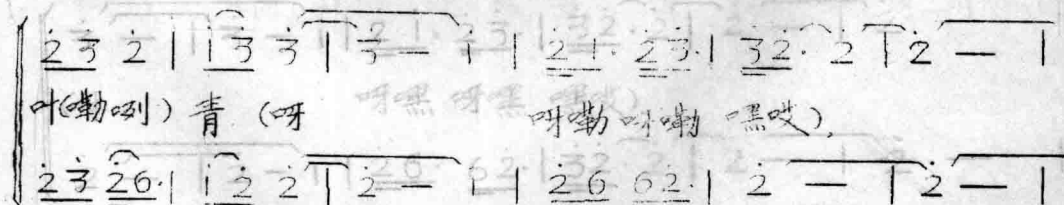 2̇3̇ 2̇ | 1̇3̇ 3̇ | 3̇ — | 2̇1̇· 2̇3̇· | 3̇2̇· 2̇ | 2̇ — |
叶(嘞咧) 青 (呀 呀嘞 呀嘞 嘿哎),
2̇3̇ 2̇6· | 1̇2̇ 2̇ | 2̇ — | 2̇6 62̇· | 2̇ — | 2̇ — |